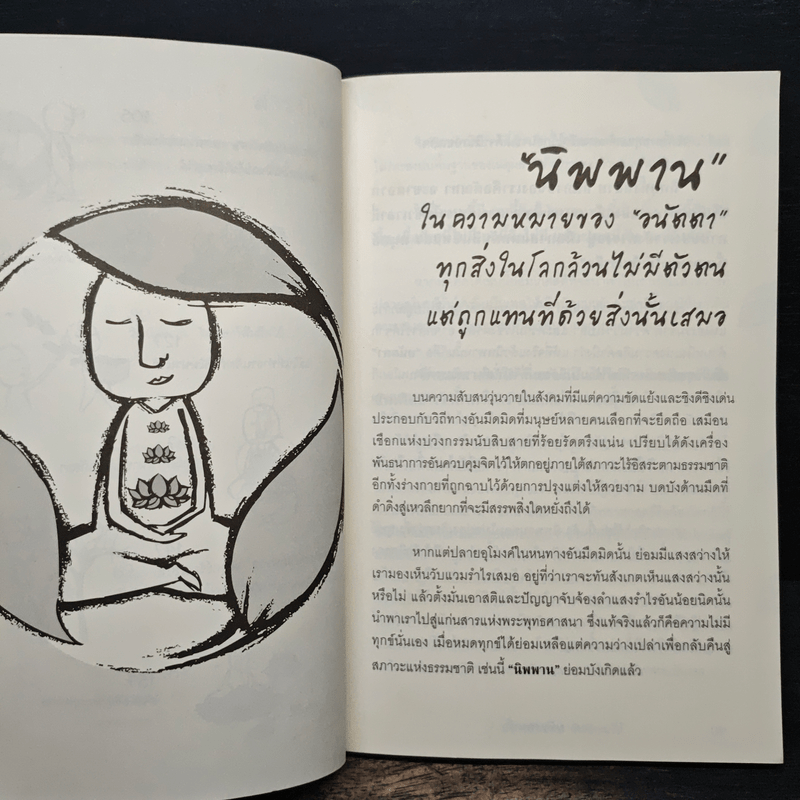 "นิพพาน"
ในความหมายของ "อนัตตา"
ทุกสิ่งในโลกล้วนไม่มีตัวตน
แต่ถูกแทนที่ด้วยสิ่งนั้นเสมอ
บนความสับสนวุ่นวายในสังคมที่มีแต่ความขัดแย้งและชิงดีชิงเด่น
ประกอบกับวิถีทางอันมืดมิดที่มนุษย์หลายคนเลือกที่จะยึดถือ เสมือน
เชือกแห่งบ่วงกรรมนับสิบสายที่ร้อยรัดตรึงแน่น เปรียบได้ดังเครื่อง
พันธนาการอันควบคุมจิตไว้ให้ตกอยู่ภายใต้สภาวะไร้อิสระตามธรรมชาติ
อีกทั้งร่างกายที่ถูกฉาบไว้ด้วยการปรุงแต่งให้สวยงาม บดบังด้านมืดที่
ดำดิ่งสู่เหวลึกยากที่จะมีสรรพสิ่งใดหยั่งถึงได้
หากแต่ปลายอุโมงค์ในหนทางอันมืดมิดนั้น ย่อมมีแสงสว่างให้
เรามองเห็นวับแวมรำไรเสมอ อยู่ที่ว่าเราจะทันสังเกตเห็นแสงสว่างนั้น
หรือไม่ แล้วตั้งมั่นเอาสติและปัญญาจับจ้องลำแสงรำไรอันน้อยนิดนั้น
นำพาเราไปสู่แก่นสารแห่งพระพุทธศาสนา ซึ่งแท้จริงแล้วก็คือความไม่มี
ทุกข์นั่นเอง เมื่อหมดทุกข์ได้ย่อมเหลือแต่ความว่างเปล่าเพื่อกลับคืนสู่
สภาวะแห่งธรรมชาติ เช่นนี้ "นิพพาน" ย่อมบังเกิดแล้ว